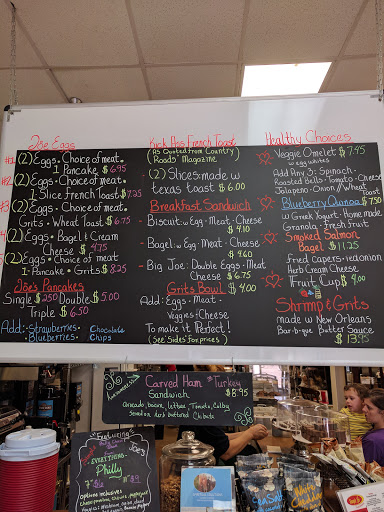 Joe's Eggs
#1 (2) Eggs • Choice of meat •
1 Pancake $6.95
#2 (2) Eggs • Choice of meat •
1 Slice French Toast $7.25
#3 (2) Eggs • Choice of meat •
Grits • Wheat Toast $6.75
(2) Eggs • Bagel & Cream
Cheese $4.75
(2) Eggs • Choice of meat
1-Pancake • Grits $8.25
Joe's Pancakes
Single $2.50 Double $5.00
Triple $6.50
Add: -Strawberries • Chocolate
-Blueberries • Chips
Kick Ass French Toast
(As Quoted from "Country
Roads" Magazine
- (2) Slices made w
texas toast $6.00
Breakfast Sandwich
- Biscuit: w Egg • Meat • Cheese
$4.10
- Bagel: w Egg • Meat • Cheese
$4.60
- Big Joe: Double Eggs • Meat
Cheese $6.75
Grits Bowl $4.00
Add: Eggs • Meat •
Veggies • Cheese
To make it Perfect!
(See "Sides" for prices)
Healthy Choices
Veggie Omelet $7.95
w egg whites
Add Any 3: Spinach •
Roasted Bells • Tomato • Cheese
Jalapeno • Onion // Wheat
Toast
Blueberry Quinoa $7.50
w Greek Yogurt • Home made
Granola • Fresh Fruit
Smoked Salmon
Bagel $11.25
fried capers • red onion
Herb Cream Cheese
Fruit Cup $4.00
Shrimp & Grits
made w New Orleans
Bar-b-que Butter Sauce
$13.95
Carved Ham & Turkey
Sandwich $8.95
Avocado, bacon, lettuce, Tomato, Colby
"Featuring"
Joe's
EVERYTHING
Philly